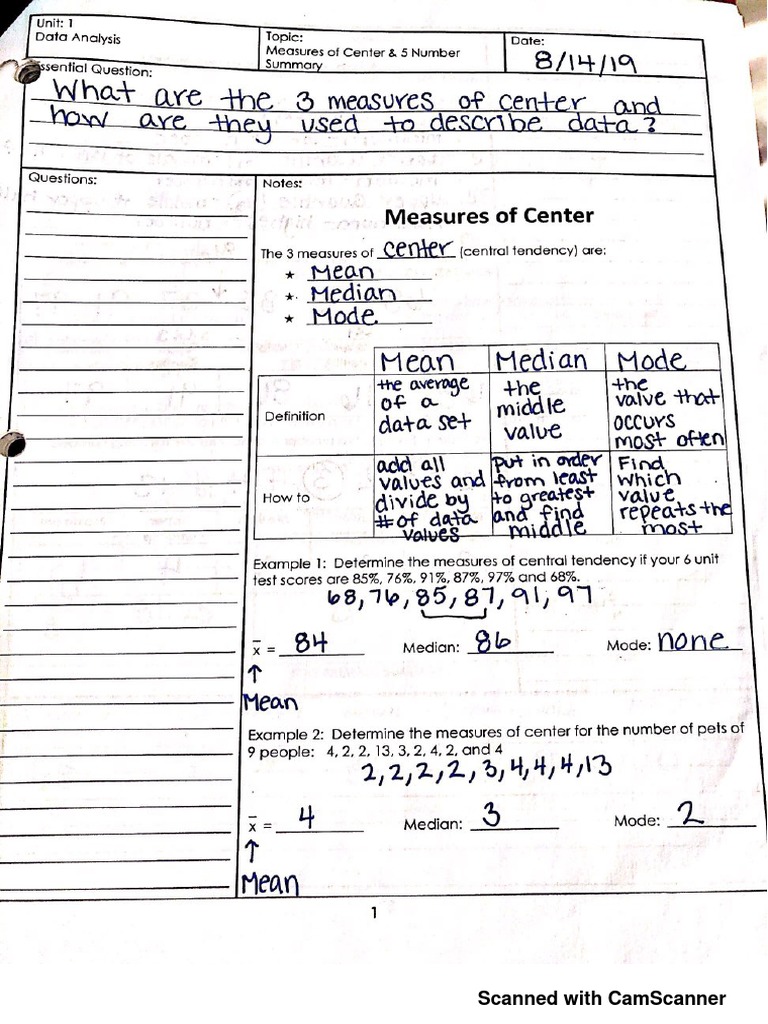 Unit: 1
Data Analysis
Topic:
Measures of Center & 5 Number
Summary
Date:
8/14/19
ssential Question:
What are the 3 measures of center and
how are they used to describe data?
Questions:
Notes:
Measures of Center
The 3 measures of center (central tendency) are:
★ Mean
★ Median
★ Mode
Mean Median Mode
Definition
the average
of a
data set
the
middle
value
the
value that
occurs
most often
How to
add all
values and
divide by
# of data
values
put in order
from least
to greatest
and find
middle
Find
which
value
repeats the
most
Example 1: Determine the measures of central tendency if your 6 unit
test scores are 85%, 76%, 91%, 87%, 97% and 68%.
68, 76, 85, 87, 91, 97
x̄ = 84 Median: 86 Mode: none
↑
Mean
Example 2: Determine the measures of center for the number of pets of
9 people: 4, 2, 2, 13, 3, 2, 4, 2, and 4
2, 2, 2, 2, 3, 4, 4, 4, 13
x̄ = 4 Median: 3 Mode: 2
↑
Mean
1
Scanned with CamScanner